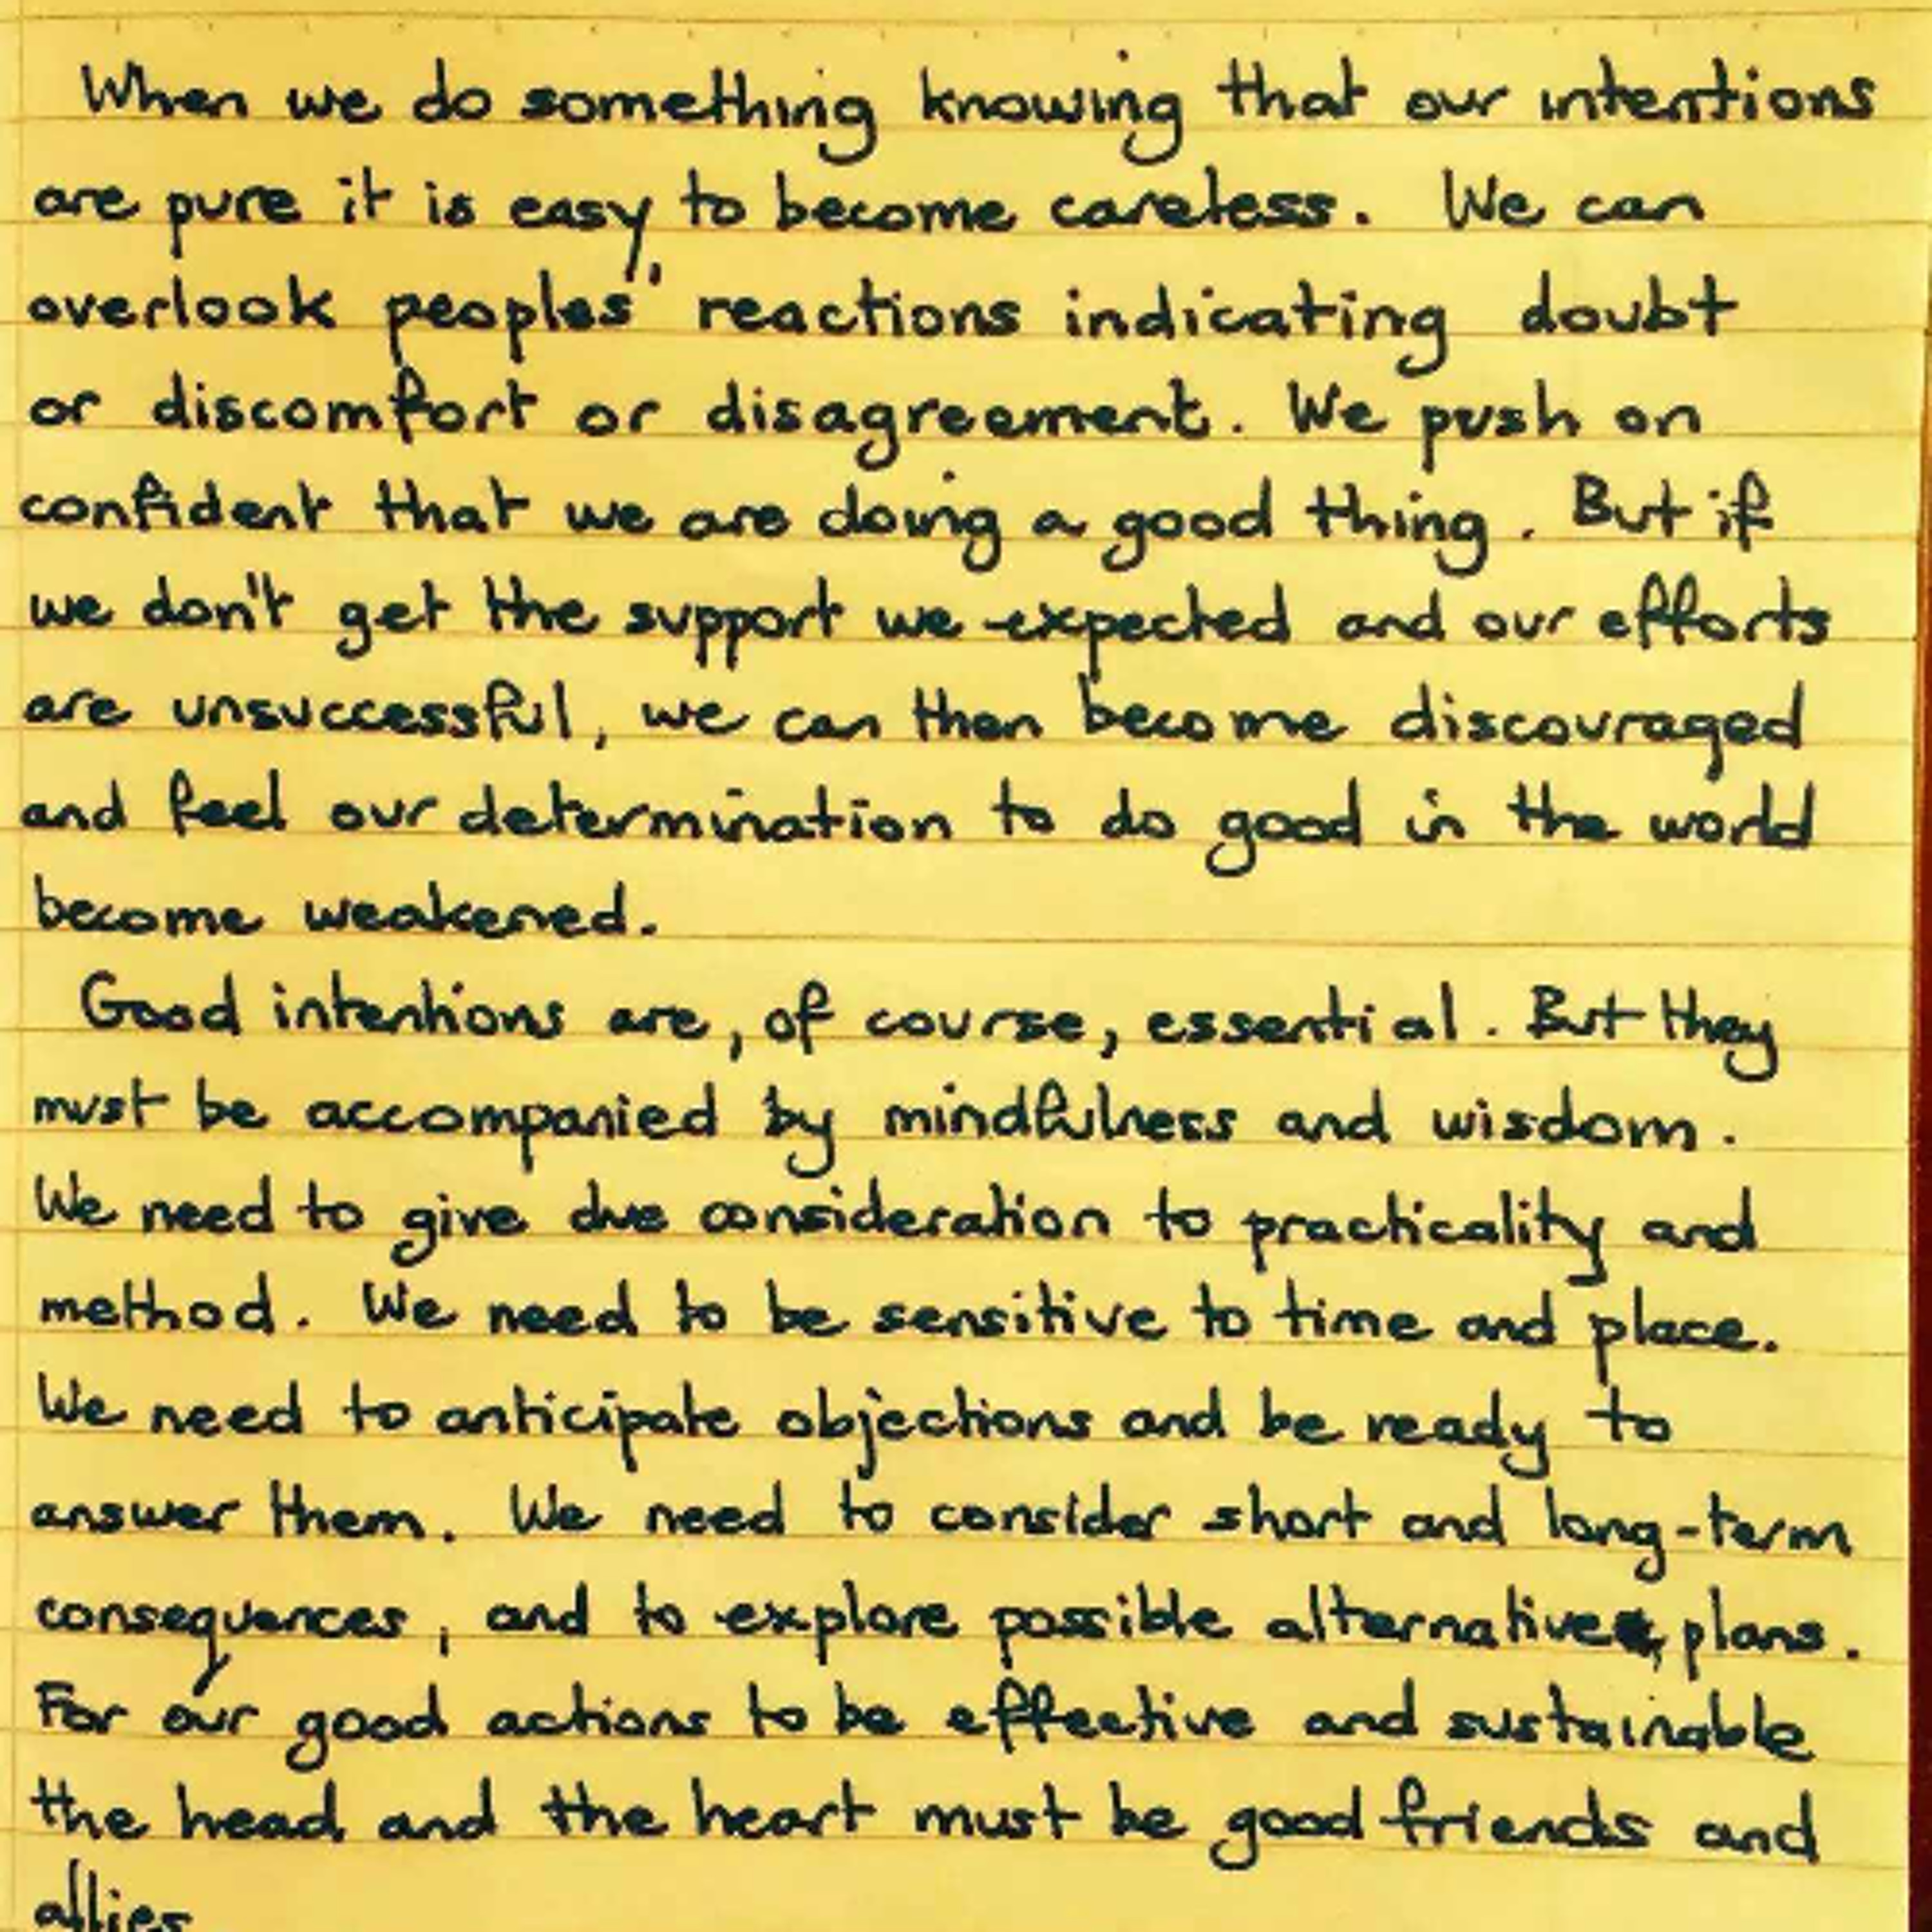 When we do something knowing that our intentions
are pure it is easy to become careless. We can
overlook peoples' reactions indicating doubt
or discomfort or disagreement. We push on
confident that we are doing a good thing. But if
we don't get the support we expected and our efforts
are unsuccessful, we can then become discouraged
and feel our determination to do good in the world
become weakened.
Good intentions are, of course, essential. But they
must be accompanied by mindfulness and wisdom.
We need to give due consideration to practicality and
method. We need to be sensitive to time and place.
We need to anticipate objections and be ready to
answer them. We need to consider short and long-term
consequences, and to explore possible alternative plans.
For our good actions to be effective and sustainable
the head and the heart must be good friends and
allies